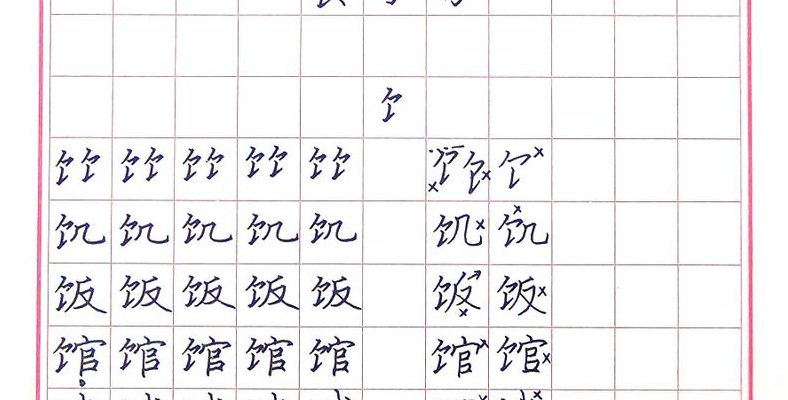 饣
饣饣 饣饣 饣饣 饣饣 饣饣 饣饣 饣
饥 饥 饥 饥 饥 饥 饥
饭 饭 饭 饭 饭 饭 饭
馆 馆 馆 馆 馆 馆 馆